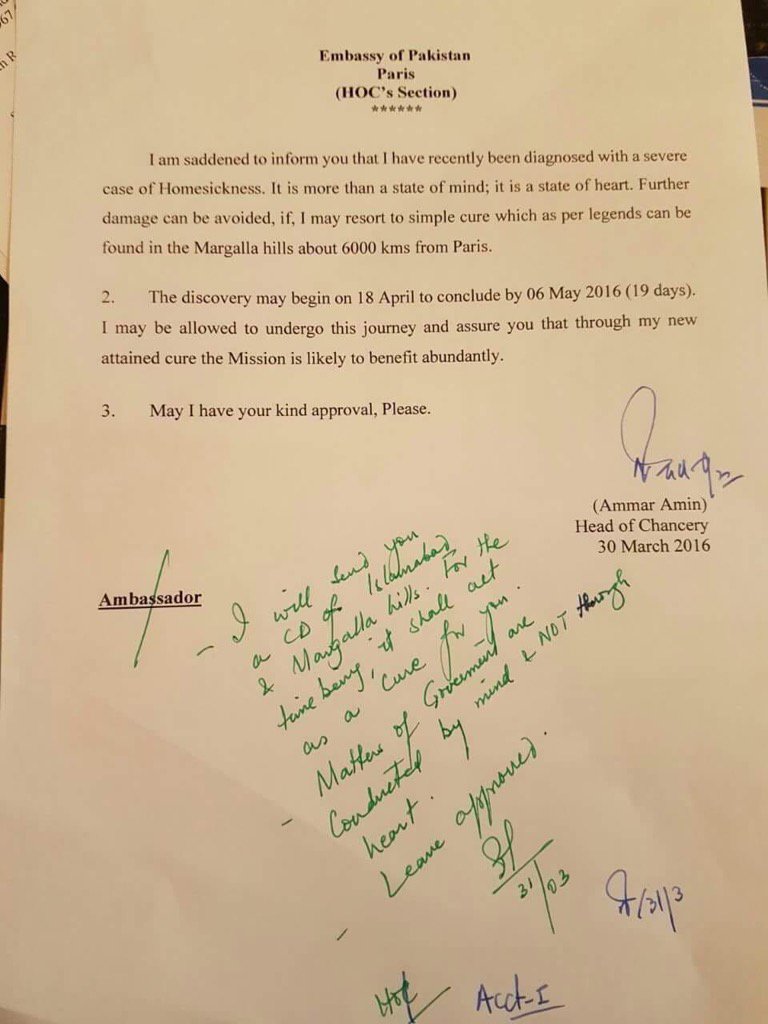 Embassy of Pakistan
Paris
(HOC's Section)
******
I am saddened to inform you that I have recently been diagnosed with a severe
case of Homesickness. It is more than a state of mind; it is a state of heart. Further
damage can be avoided, if, I may resort to simple cure which as per legends can be
found in the Margalla hills about 6000 kms from Paris.
2. The discovery may begin on 18 April to conclude by 06 May 2016 (19 days).
I may be allowed to undergo this journey and assure you that through my new
attained cure the Mission is likely to benefit abundantly.
3. May I have your kind approval, Please.
(Ammar Amin)
Head of Chancery
30 March 2016
Ambassador
- I will send you
a CD of Islamabad
& Margalla hills. For the
time being, it shall act
as a cure for you.
- Matters of Government are
Conducted by mind & NOT through
heart.
- Leave approved.
31/03
/31/3
HoC
Acct-I